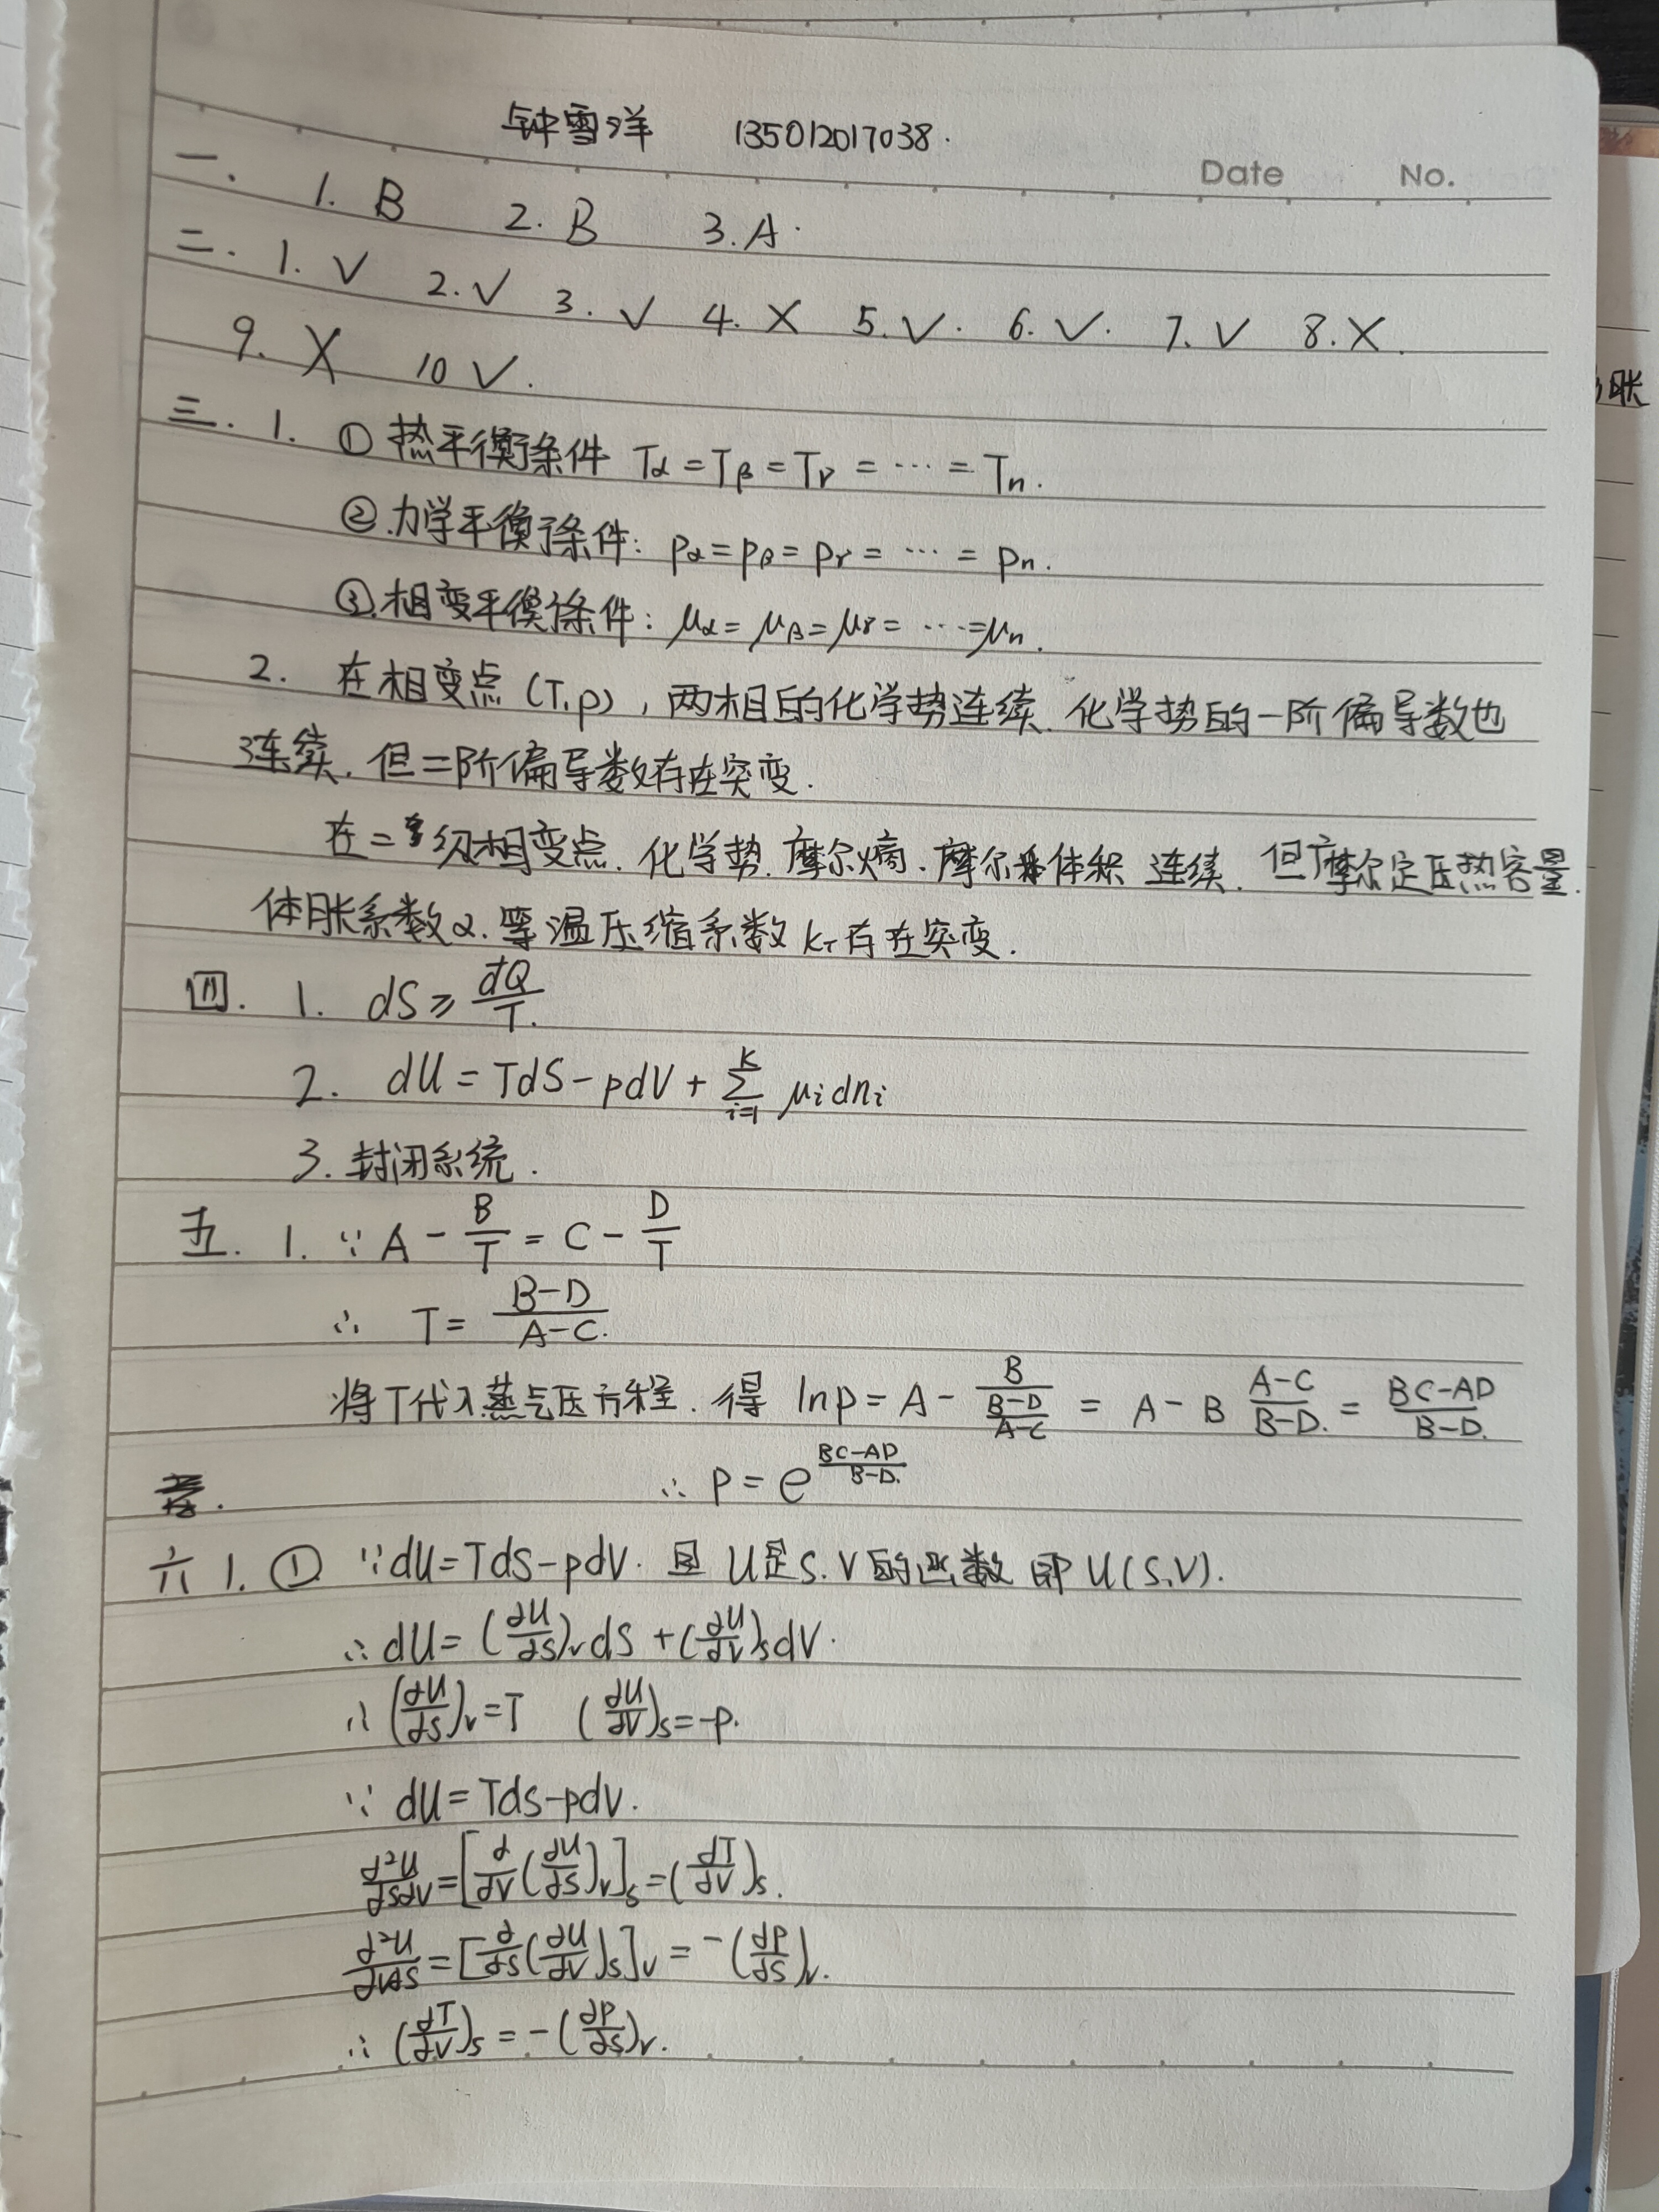 钟雪洋 135012017038.
Date No.
一. 1. B 2. B 3. A.
二. 1. √ 2. √ 3. √ 4. × 5. √. 6. √. 7. √ 8. ×.
9. × 10 √.
三. 1. ① 热平衡条件 Tα = Tβ = Tγ = … = Tn.
② 力学平衡条件: pα = pβ = pγ = … = pn.
③ 相变平衡条件: μα = μβ = μγ = … = μn.
2. 在相变点 (T,p), 两相的化学势连续. 化学势的一阶偏导数也
连续. 但二阶偏导数存在突变.
在二级相变点. 化学势. 摩尔熵. 摩尔体积 连续. 但摩尔定压热容量.
体胀系数α. 等温压缩系数 kT存在突变.
胀
四. 1. dS ≥ đQ/T.
2. dU = TdS - pdV + ∑_{i=1}^{k} μi dni
3. 封闭系统.
五. 1. ∵ A - B/T = C - D/T
∴ T = (B-D)/(A-C).
将T代入蒸气压方程. 得 lnp = A - B/((B-D)/(A-C)) = A - B (A-C)/(B-D). = (BC-AD)/(B-D).
∴ p = e^{(BC-AD)/(B-D).}
六 1. ① ∵ dU = TdS - pdV. 且 U是S.V的函数 即 U(S,V).
∴ dU = (∂U/∂S)_V dS + (∂U/∂V)_S dV.
∴ (∂U/∂S)_V = T (∂U/∂V)_S = -p.
∵ dU = TdS - pdV.
∂²U/∂S∂V = [∂/∂V (∂U/∂S)_V]_S = (∂T/∂V)_S.
∂²U/∂V∂S = [∂/∂S (∂U/∂V)_S]_V = -(∂p/∂S)_V.
∴ (∂T/∂V)_S = -(∂p/∂S)_V.